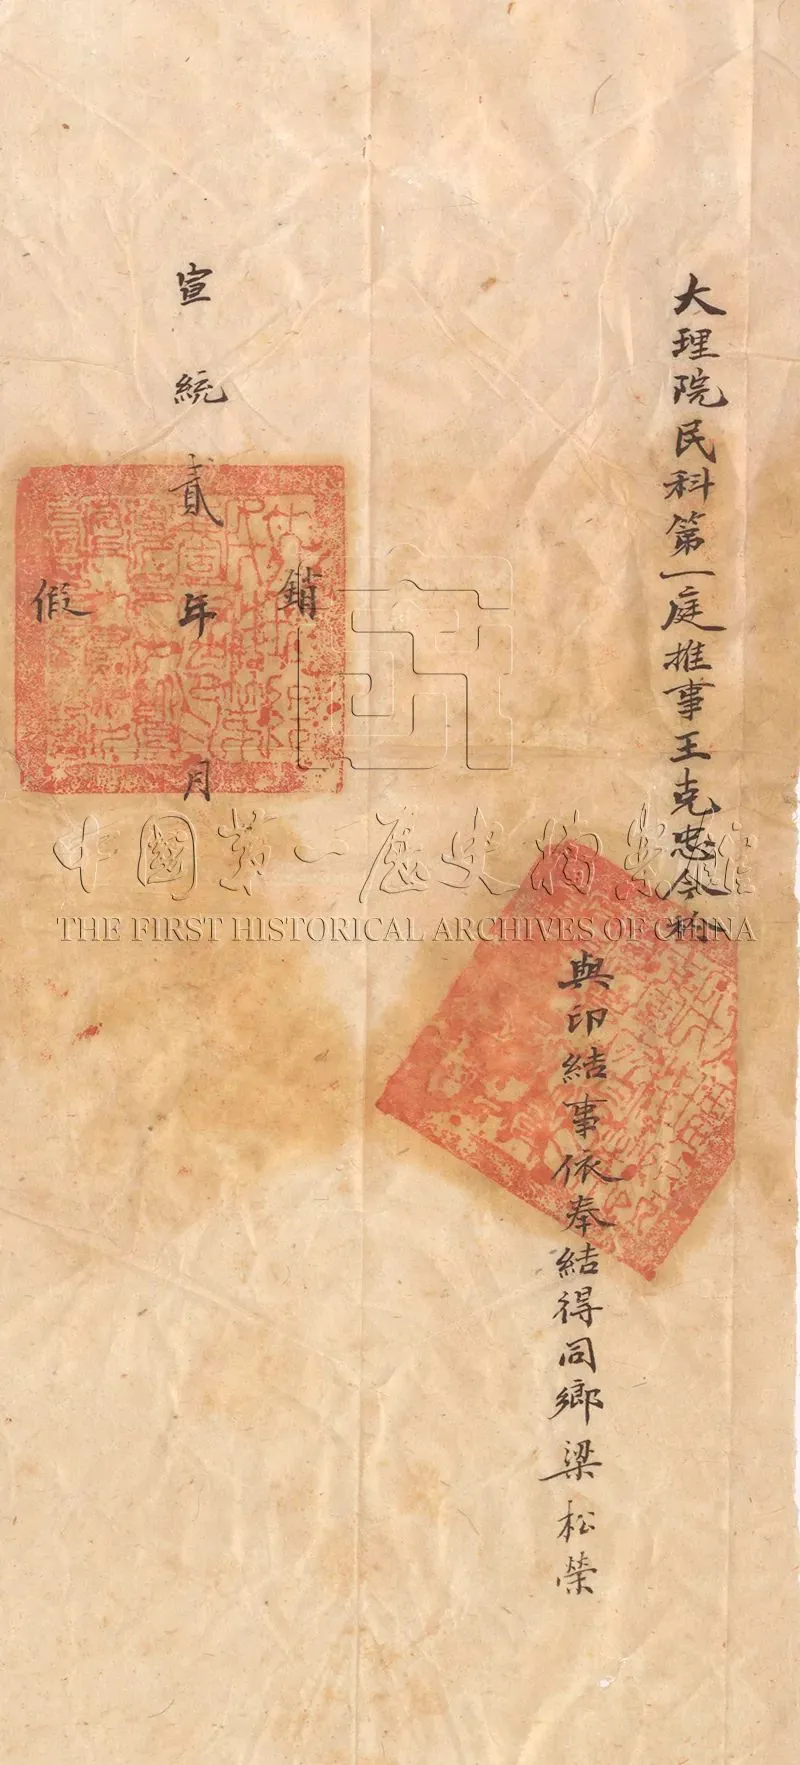 大理院民科第一庭推事王克忠今於
與印結事依奉結得同鄉梁松榮
銷
宣統貳年 月
假
中國第一歷史檔案館
THE FIRST HISTORICAL ARCHIVES OF CHINA